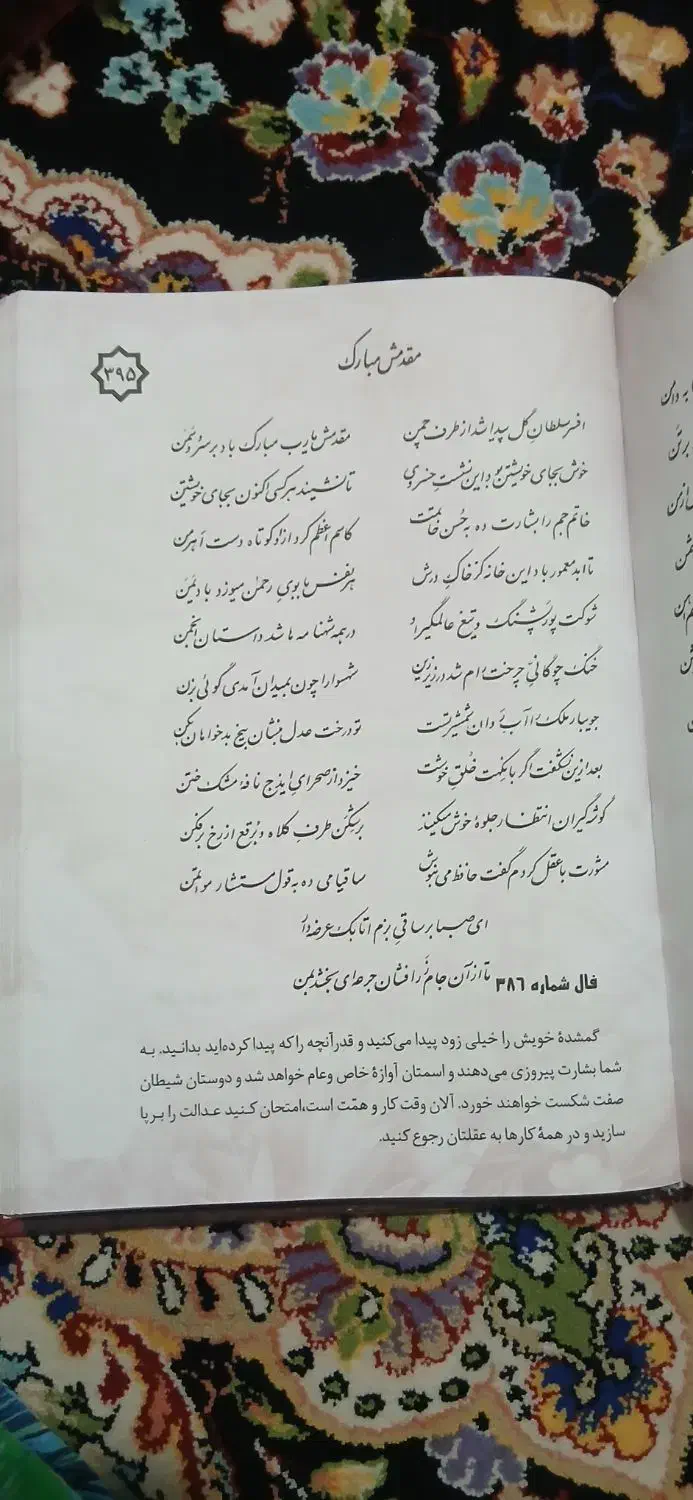 مقدمش مبارک
۳۹۵
افسر سلطان گل پیدا شد از طرف چمن مقدمش یارب مبارک باد بر سرو و سمن
خوش بجای خویشتن بود این نشست خسروی تا نشیند هر کسی اکنون بجای خویشتن
خاتم جم را بشارت ده به حُسن خاتمت کاسم اعظم کرد ازو کوتاه دست اهرمن
تا ابد معمور باد این خانه کز خاک درش هر نفس با بوی رحمن میوزد باد یمن
شوکت پور پشنگ و تیغ عالمگیر او در همه شهنامه ها شد داستان انجمن
خنگ چوگانی چرخت رام شد در زیر زین شهسوارا چون بمیدان آمدی گوئی بزن
جویبار ملک را آب روان شمشیر تست تو درخت عدل بنشان بیخ بدخواهان بکن
بعد ازین نشگفت اگر با نکهت خُلق خوشت خیزد از صحرای ایذج نافهٔ مشک ختن
گوشه گیران انتظار جلوهٔ خوش میکنند برشکن طرف کلاه و برقع از رخ برفکن
مشورت با عقل کردم گفت حافظ می بنوش ساقیا می ده به قول مستشار موتمن
ای صبا بر ساقی بزم اتابک عرضه دار
تا از آن جام زرافشان جرعه ای بخشد بمن
فال شماره ۳۸۶
گمشدهٔ خویش را خیلی زود پیدا می‌کنید و قدر آنچه را که پیدا کرده‌اید بدانید. به
شما بشارت پیروزی می‌دهند و اسمتان آوازهٔ خاص وعام خواهد شد و دوستان شیطان
صفت شکست خواهند خورد. آلان وقت کار و همّت است،امتحان کنید عدالت را برپا
سازید و در همهٔ کارها به عقلتان رجوع کنید.